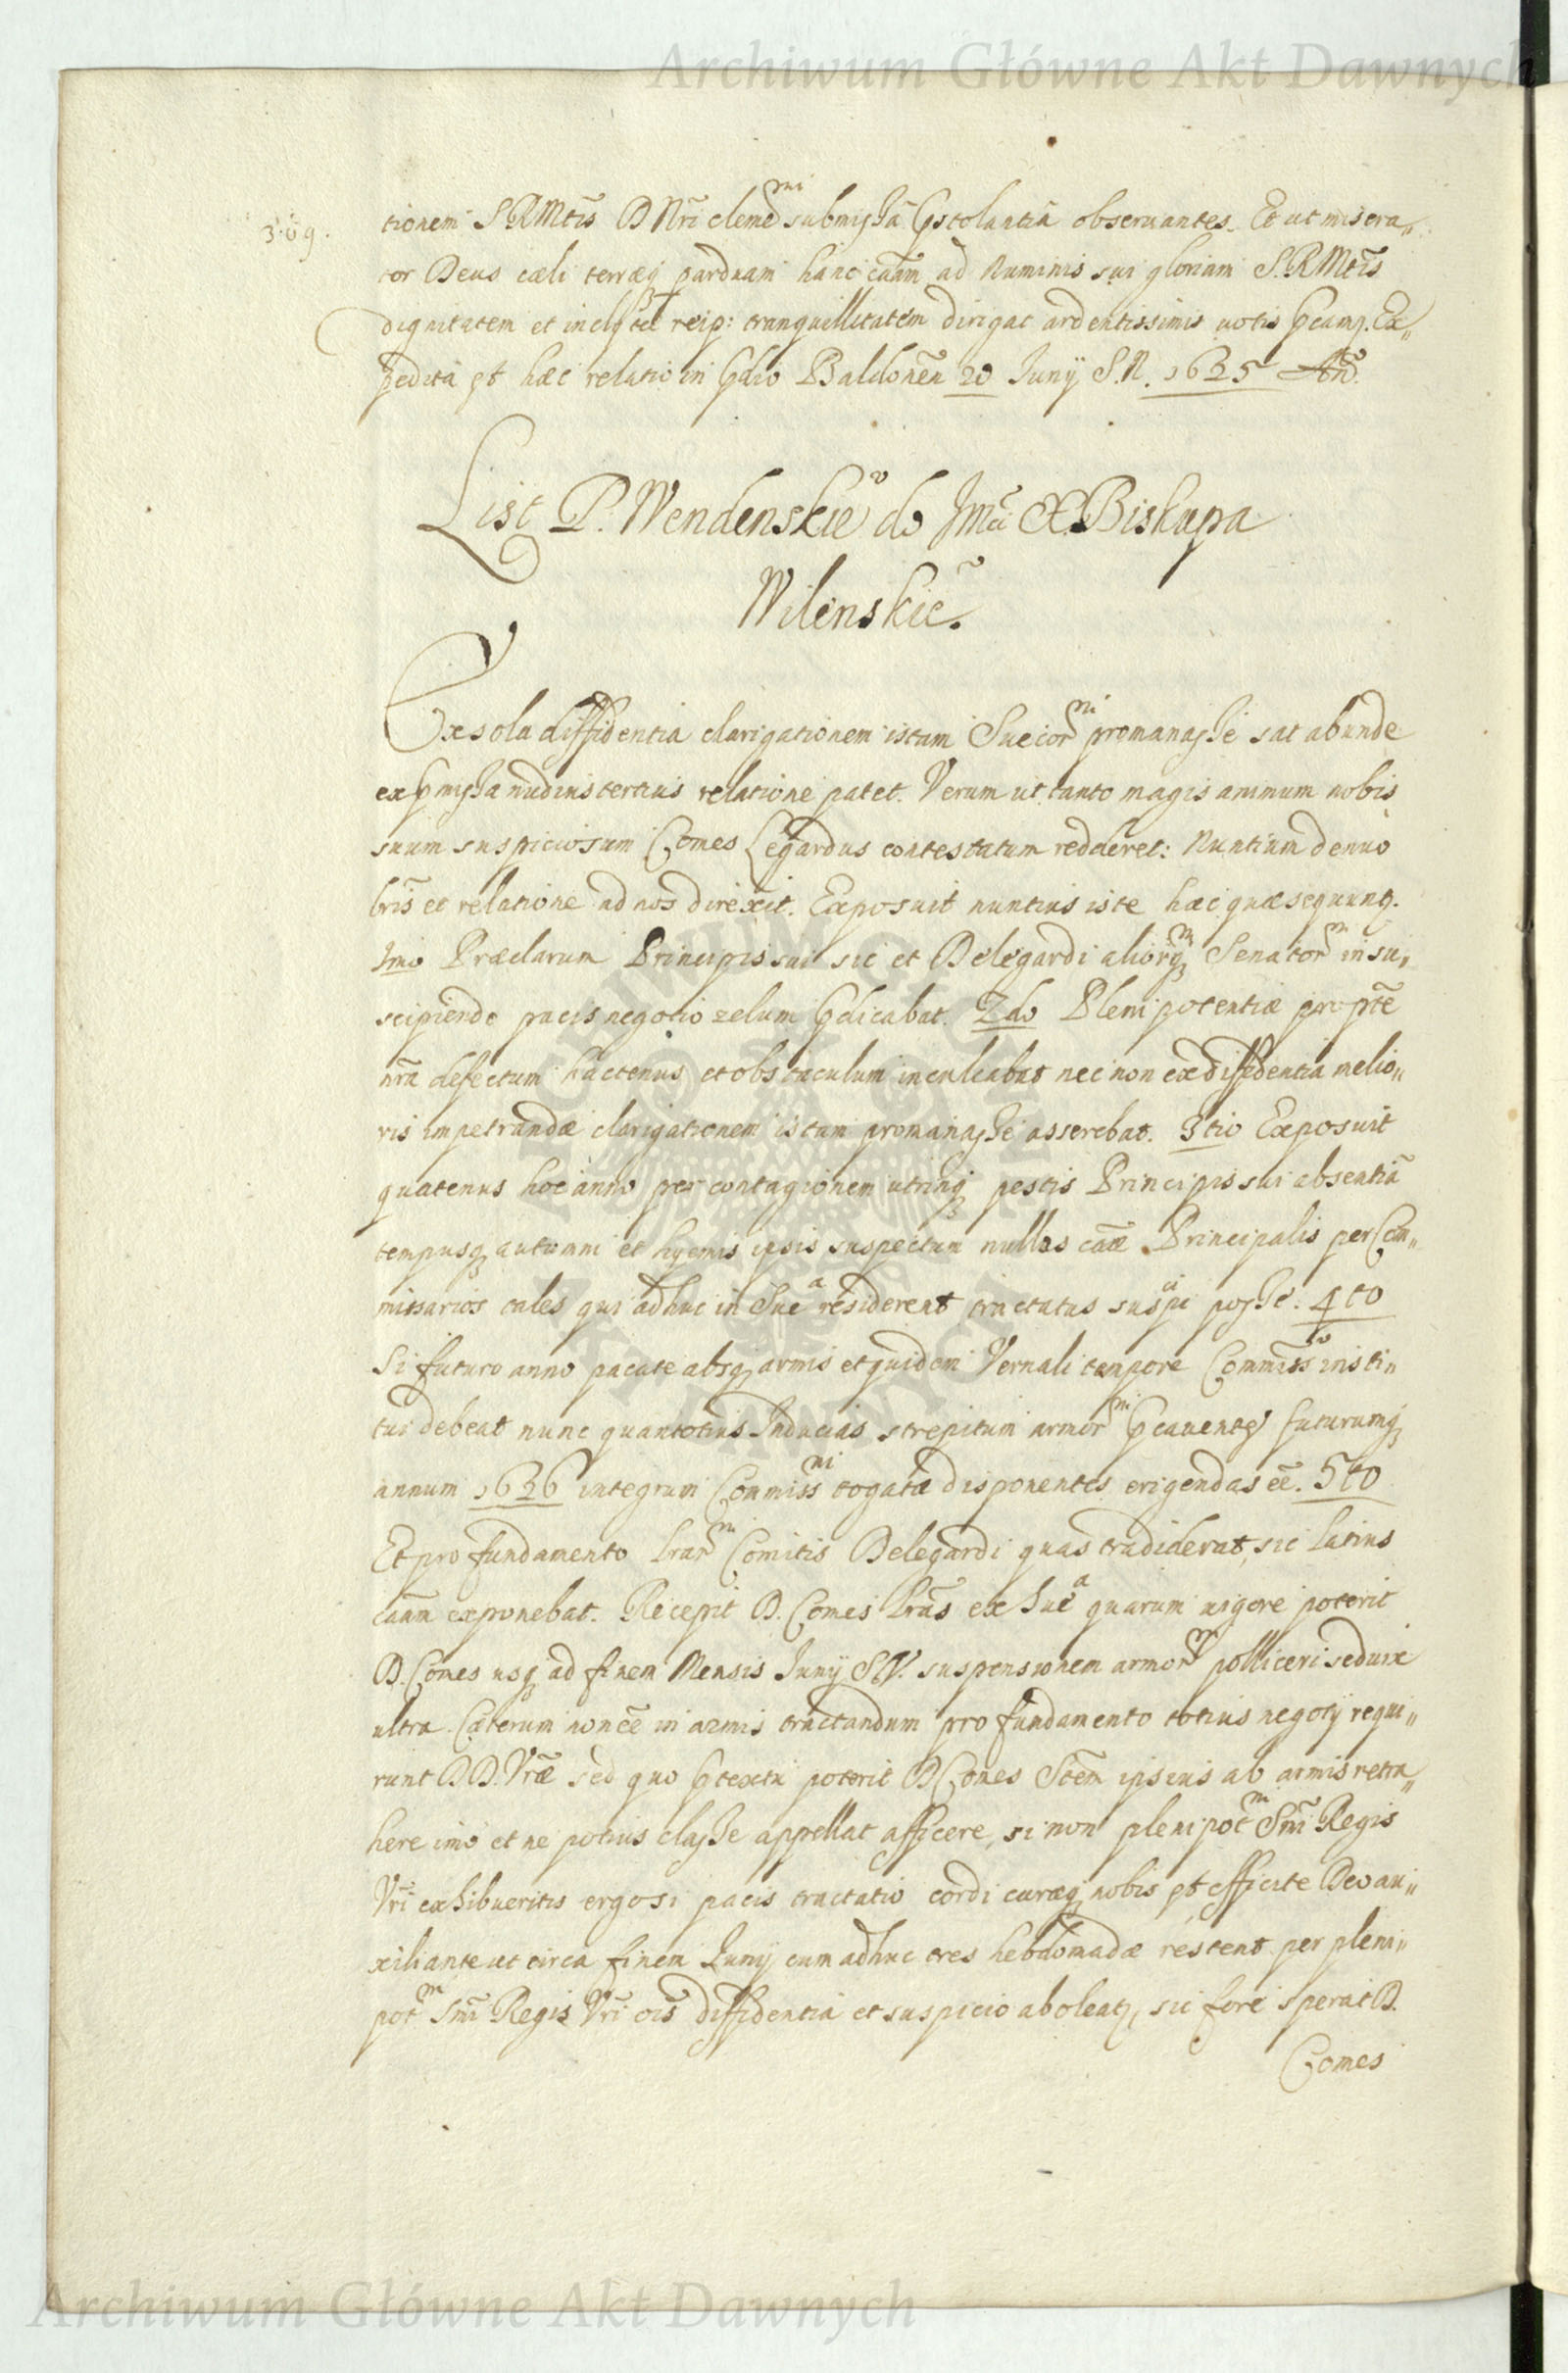 Archiwum Główne Akt Dawnych
309.
tionem S R Mtis D Nri clememi submissā Pstolantiā observantes. Et ut misera„
tor Deus cæli terræq pardnam hanc cāam ad Numinis sui gloriam S. R Mtis
dignitatem et inclytæ reip: tranquillitatem dirigat ardentissimis votis Pcamr. Ex„
pedita est hæc relatio in Pdio Baldonen 20 Juny S. N. 1625 Ano
List P. Wendenskieo do Jmci X. Biskupa
Wilenskieo.
Ex sola diffidentia clarigationem istam Suecorm promanasse sat abunde
ex Pmissa nudius tertius relatione patet. Verum ut tanto magis animum nobis
suum suspiciosum Comes Legardus contestatum redderet: Nuntium denuo
lris et relatione ad nos direxit. Exposuit nuntius iste hæc quæ sequuntr.
Imo Præclarum Principis sui sic et Delegardi aliorumq Senatorm in su„
scipiendo pacis negotio zelum Pdicabat. 2do Plenipotentiæ propte
nrā defectum hactenus et obstaculum inculcabat nec non ex diffidentia melio„
ris impetrandæ clarigationem istam promanasse asserebat. 3tio Exposuit
quatenus hoc anno per contagionem utrinq pestis Principis sui absentiā
tempusq autumni et hyemis ipsis suspectum nullos cāæ Principalis per Com„
missarios tales qui adhuc in Suea residerent tractatus suscipi posse. 4to
Si futuro anno pacate absq armis et quidem Vernali tempore Commissio insti„
tui debeat nunc quantotius Inducias strepitum armorm Pcaventes futurumq
annum 1626 integrum Commissm togatæ disponentes erigendas eē. 5to
Et pro fundamento lrarm Comitis Delegardi quas tradiderat, sic latius
cāam exponebat. Recepit D. Comes lrās ex Suea quarum vigore poterit
D. Comes usq ad finem Mensis Juny S.V. suspensionem armorm polliceri sed vix
ultra. Cæterum non eē in armis tractandum pro fundamento totius negoty requi„
runt D D. Vræ sed quo Ptextu poterit D Comes Stem ipsius ab armis retra„
here imo et ne potius classe appellat afficere, si non plenipotm Smi Regis
Vri exhibueritis ergo si pacis tractatio cordi curæq nobis est efficite Deo au„
xiliante ut circa finem Juny cum adhuc tres hebdomadæ restent per pleni„
potm Smi Regis Vri ois diffidentia et suspicio aboleatr, sic fore sperat D.
Comes
Archiwum Główne Akt Dawnych